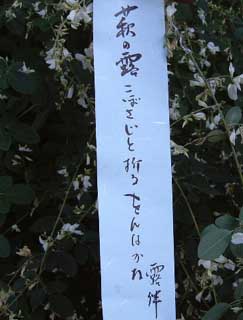 萩の露こぼさじと折るをんなかな
露伴